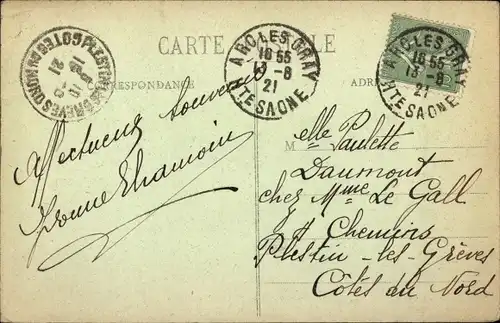 CARTE POSTALE
CORRESPONDANCE
ADRESSE
PLESTIN-LES-GREVES COTES DU NORD
ARC LES GRAY
16 55
13 - 8
21
HTE SAONE
ARC LES GRAY
16 55
13 - 8
21
HTE SAONE
Affectueux souvenir
Yvonne Chamoin
M elle Paulette
Daumont
chez Mme Le Gall
Chemins
Plestin-les-Grèves
Côtes du Nord